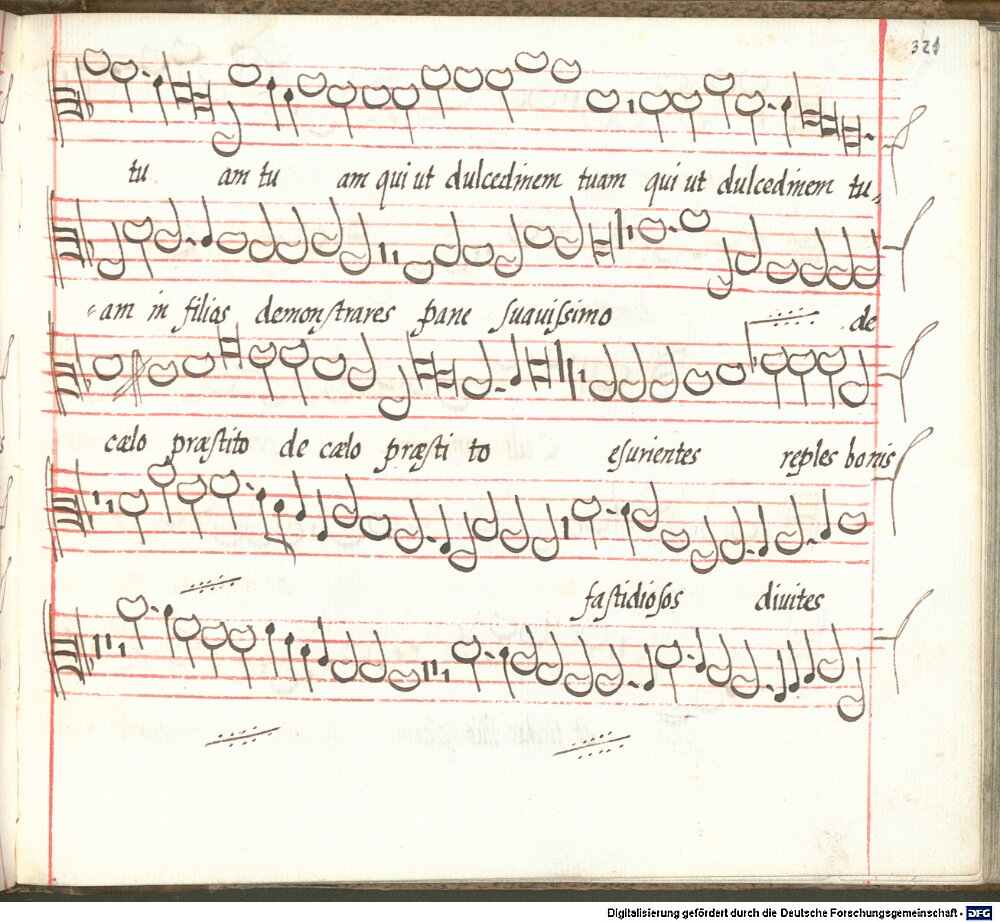 321
tu am tu am qui ut dulcedinem tuam qui ut dulcedinem tu„
„am in filios demonſtrares pane ſuauiſsimo de
cælo præſtito de cælo præſti to eſurientes reples bonis
faſtidioſos diuites
Digitalisierung gefördert durch die Deutsche Forschungsgemeinschaft - DFG